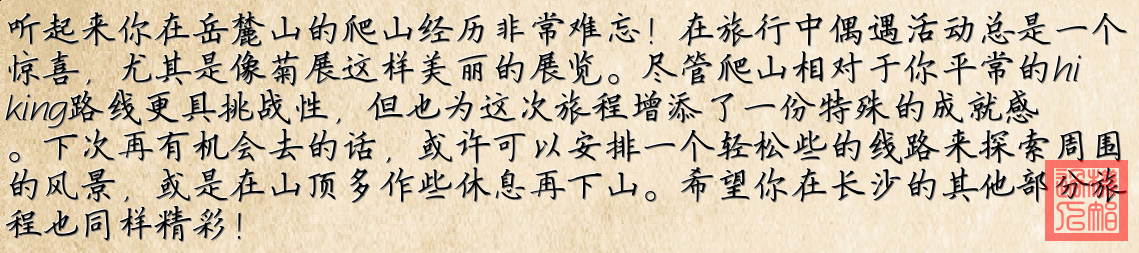 听起来你在岳麓山的爬山经历非常难忘！在旅行中偶遇活动总是一个
惊喜，尤其是像菊展这样美丽的展览。尽管爬山相对于你平常的hi
king路线更具挑战性，但也为这次旅程增添了一份特殊的成就感
。下次再有机会去的话，或许可以安排一个轻松些的线路来探索周围
的风景，或是在山顶多作些休息再下山。希望你在长沙的其他部分旅
程也同样精彩！